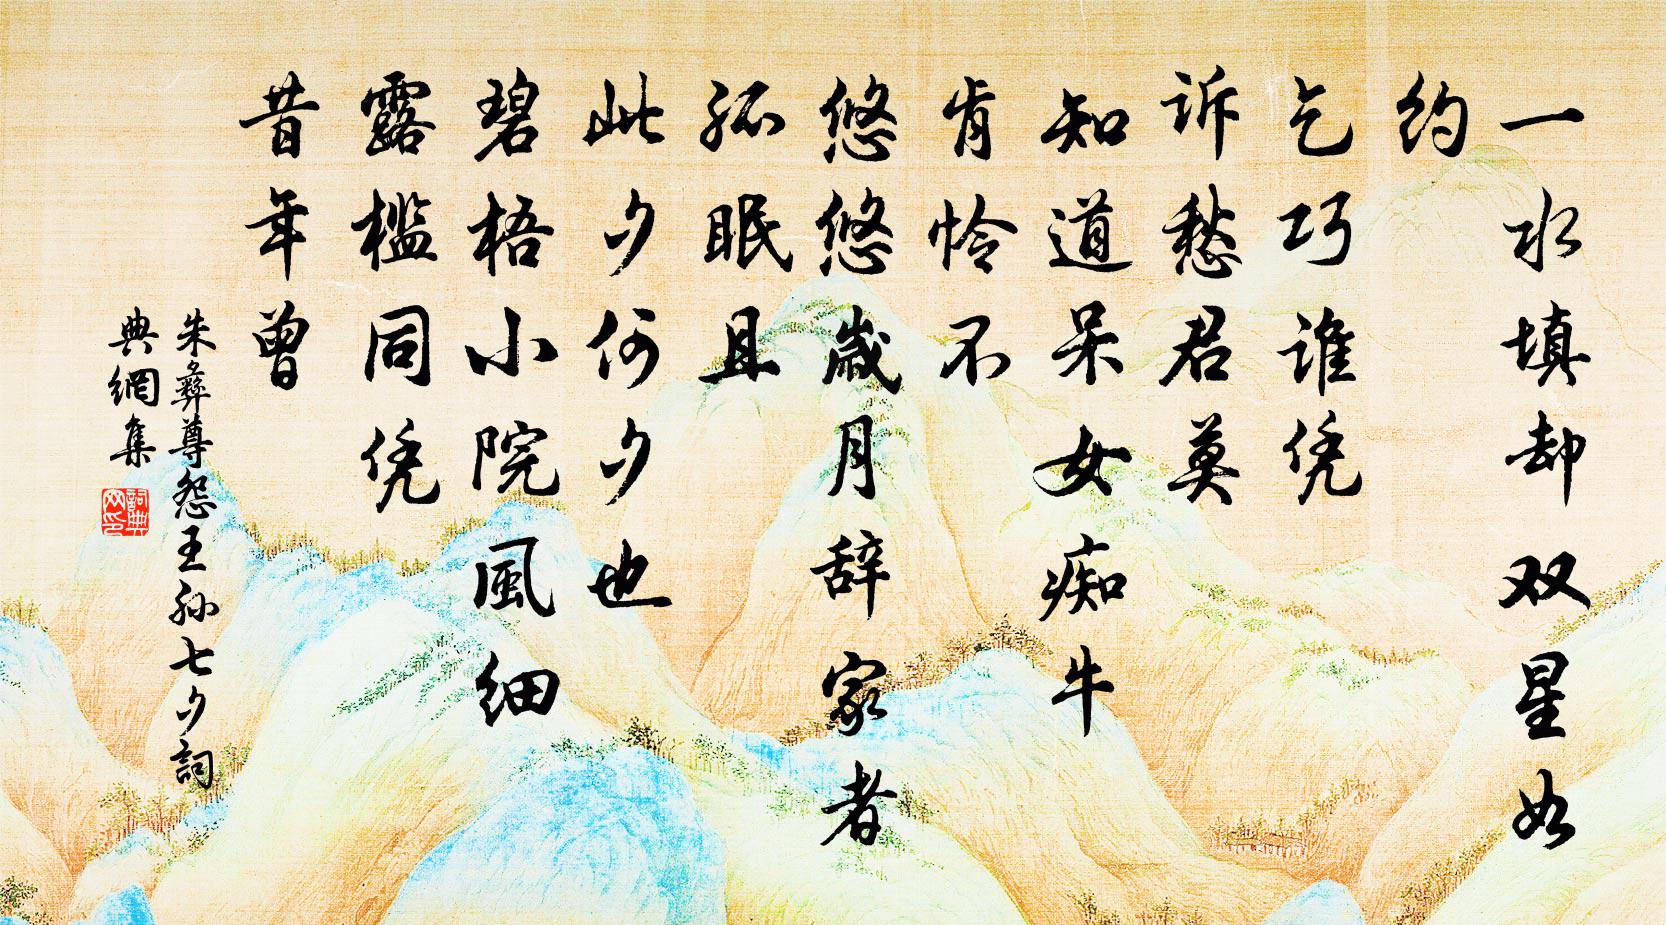 一水填却双星如
约
乞巧谁凭
诉愁君莫
知道呆女痴牛
肯怜不
悠悠歲月辞家者
孤眠且
此夕何夕也
碧梧小院風细
露槛同凭
昔年曾
朱彝尊怨王孙七夕詞
典網集
詞典
网印